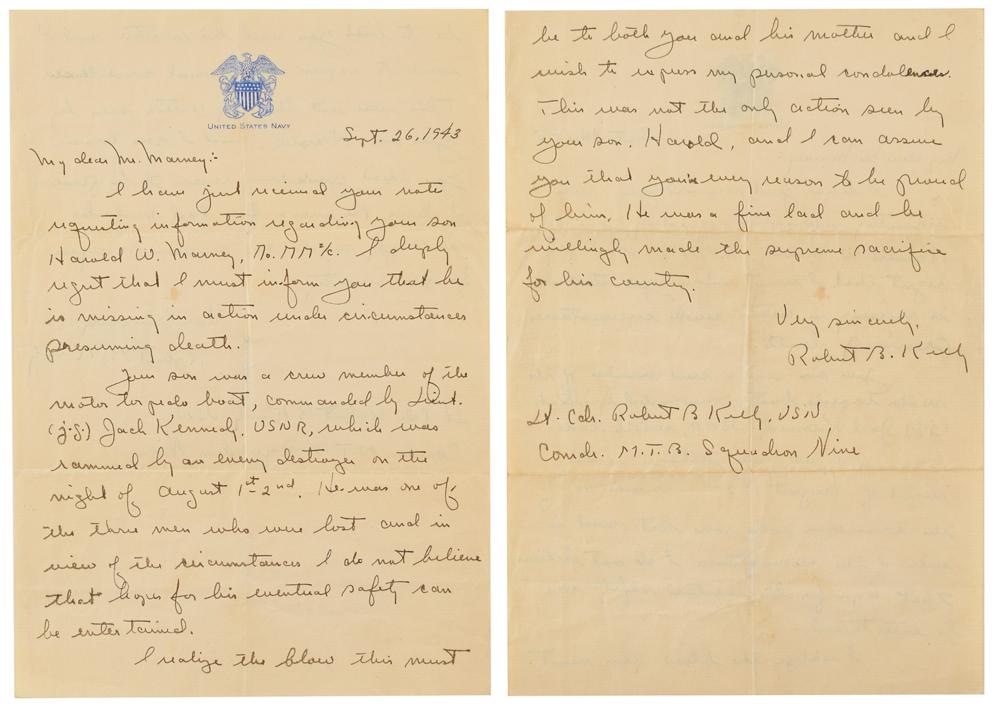 UNITED STATES NAVY
Sept. 26, 1943
My dear Mr. Marney:-
I have just received your note
requesting information regarding your son
Harold W. Marney, Mo.MM2/c. I deeply
regret that I must inform you that he
is missing in action under circumstances
presuming death.
Your son was a crew member of the
motor torpedo boat, commanded by Lieut.
(j.g.) Jack Kennedy, USNR, which was
rammed by an enemy destroyer on the
night of August 1st-2nd. He was one of
the three men who were lost and in
view of the circumstances I do not believe
that hopes for his eventual safety can
be entertained.
I realize the blow this must
be to both you and his mother and I
wish to express my personal condolences.
This was not the only action seen by
your son, Harold, and I can assure
you that you've every reason to be proud
of him. He was a fine lad and he
willingly made the supreme sacrifice
for his country.
Very sincerely,
Robert B. Kelly
Lt. Cdr. Robert B Kelly, USN
Comdr. M.T.B. Squadron Nine